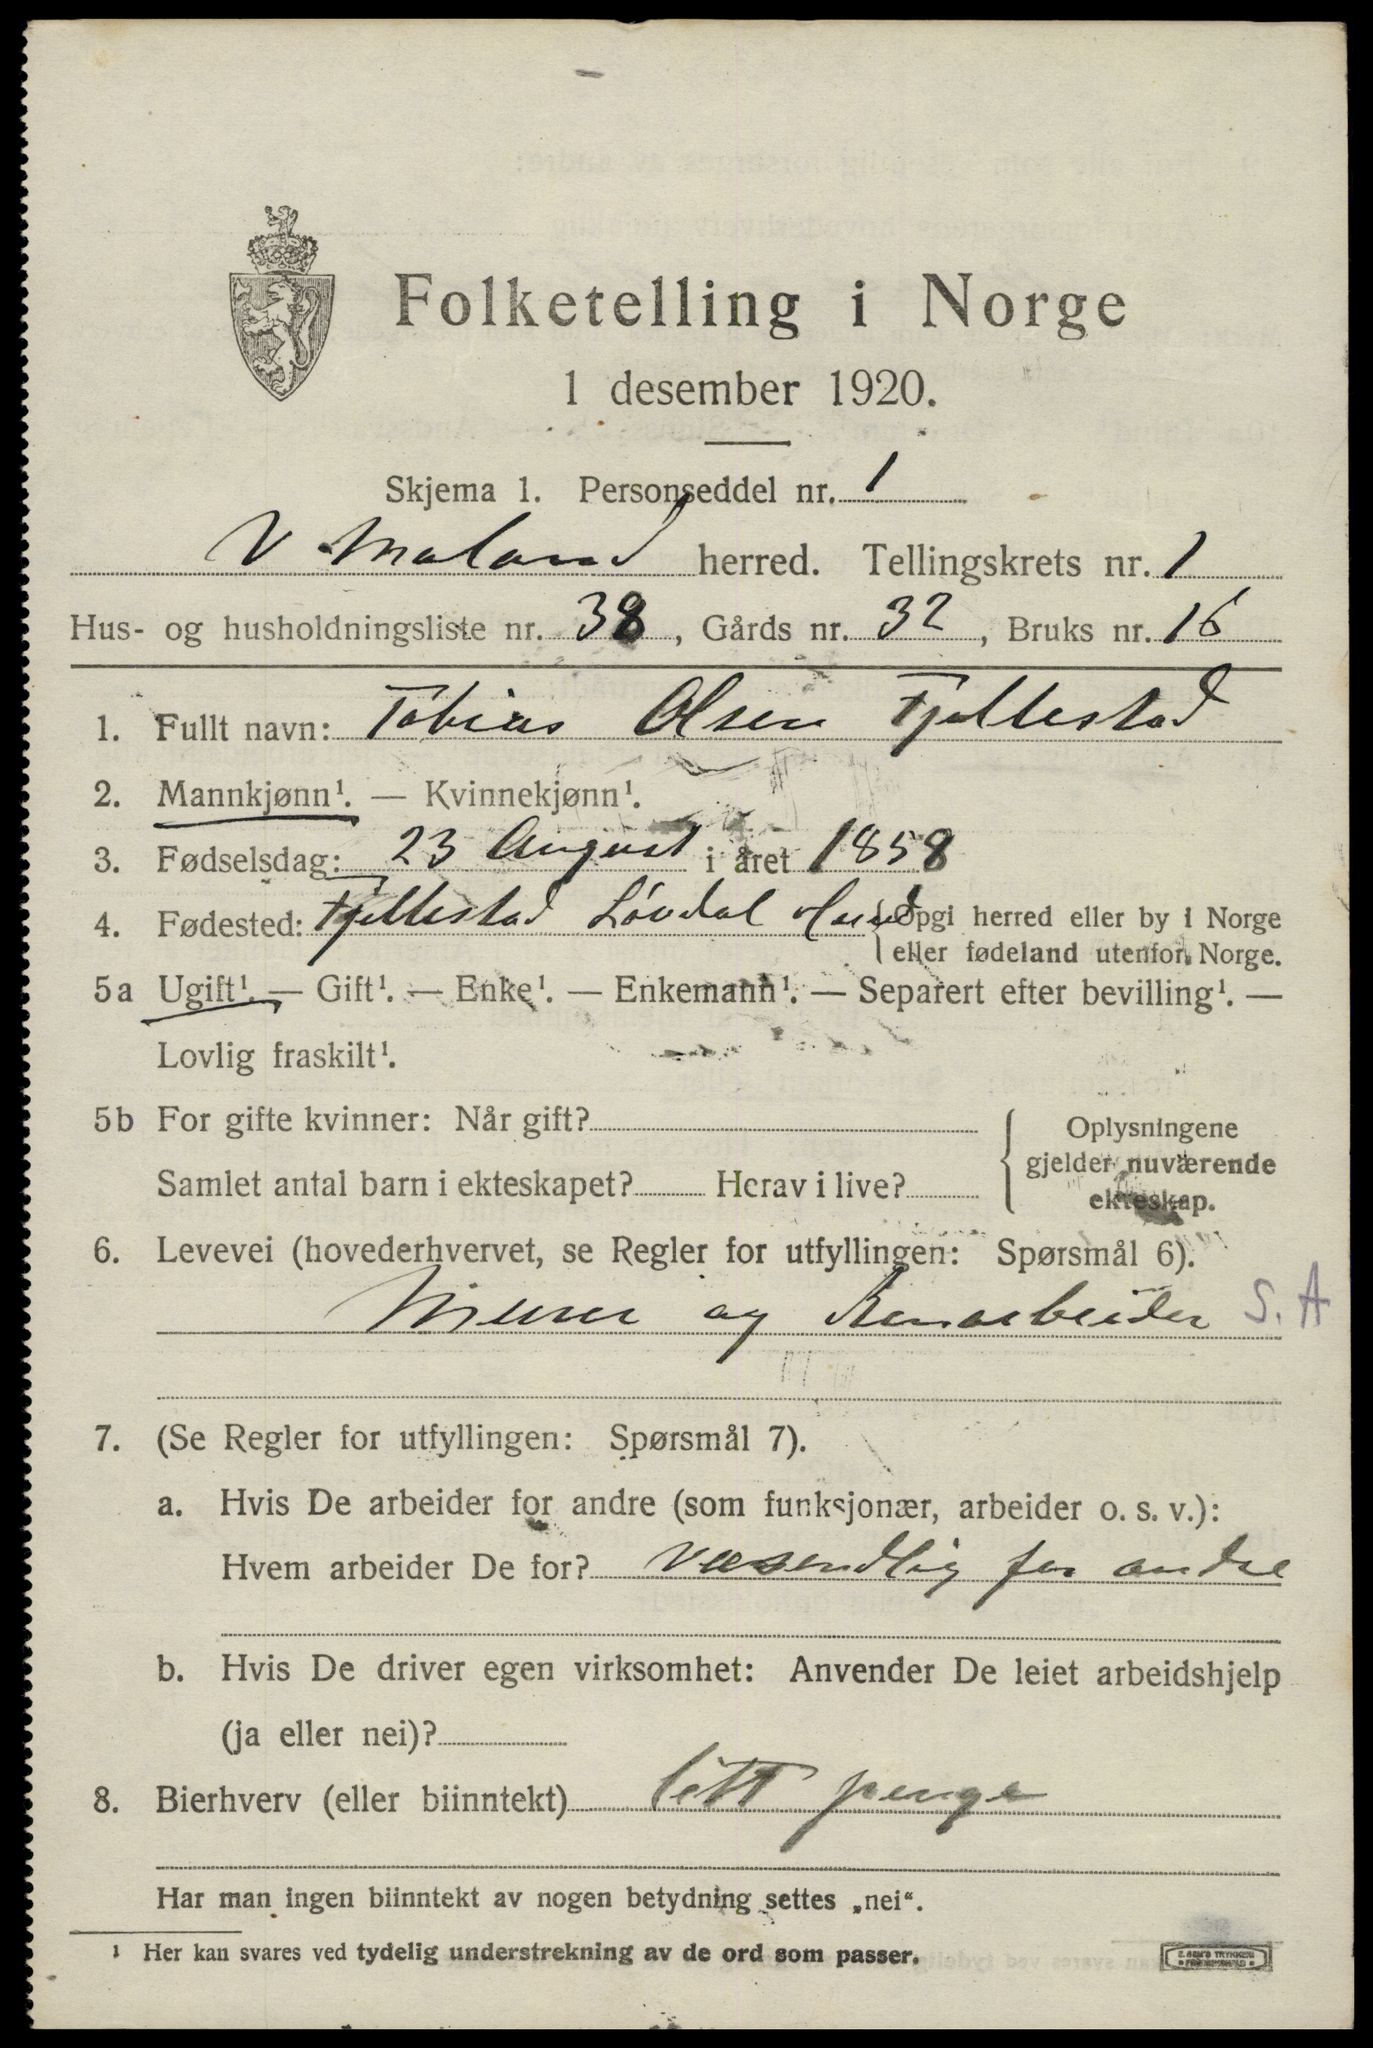 Folketelling i Norge
1 desember 1920.
Skjema 1. Personseddel nr. 1
V. Moland herred. Tellingskrets nr. 1
Hus- og husholdningsliste nr. 38, Gårds nr. 32, Bruks nr. 16
1. Fullt navn: Tobias Olsen Fjellestad
2. Mannkjønn¹. — Kvinnekjønn¹.
3. Fødselsdag: 23 August i året 1858
4. Fødested: Fjellestad Løvdal {Opgi herred eller by i Norge
eller fødeland utenfor Norge.
5a Ugift¹. — Gift¹. — Enke¹. — Enkemann¹. — Separert efter bevilling¹. —
Lovlig fraskilt¹.
5b For gifte kvinner: Når gift?
Samlet antal barn i ekteskapet? Herav i live?
{ Oplysningene
gjelder nuværende
ekteskap.
6. Levevei (hovederhvervet, se Regler for utfyllingen: Spørsmål 6).
Murer og S. A
7. (Se Regler for utfyllingen: Spørsmål 7).
a. Hvis De arbeider for andre (som funksjonær, arbeider o. s. v.):
Hvem arbeider De for? væsendlig for andre
b. Hvis De driver egen virksomhet: Anvender De leiet arbeidshjelp
(ja eller nei)?
8. Bierhverv (eller biinntekt) litt penge
Har man ingen biinntekt av nogen betydning settes „nei“.
¹ Her kan svares ved tydelig understrekning av de ord som passer.